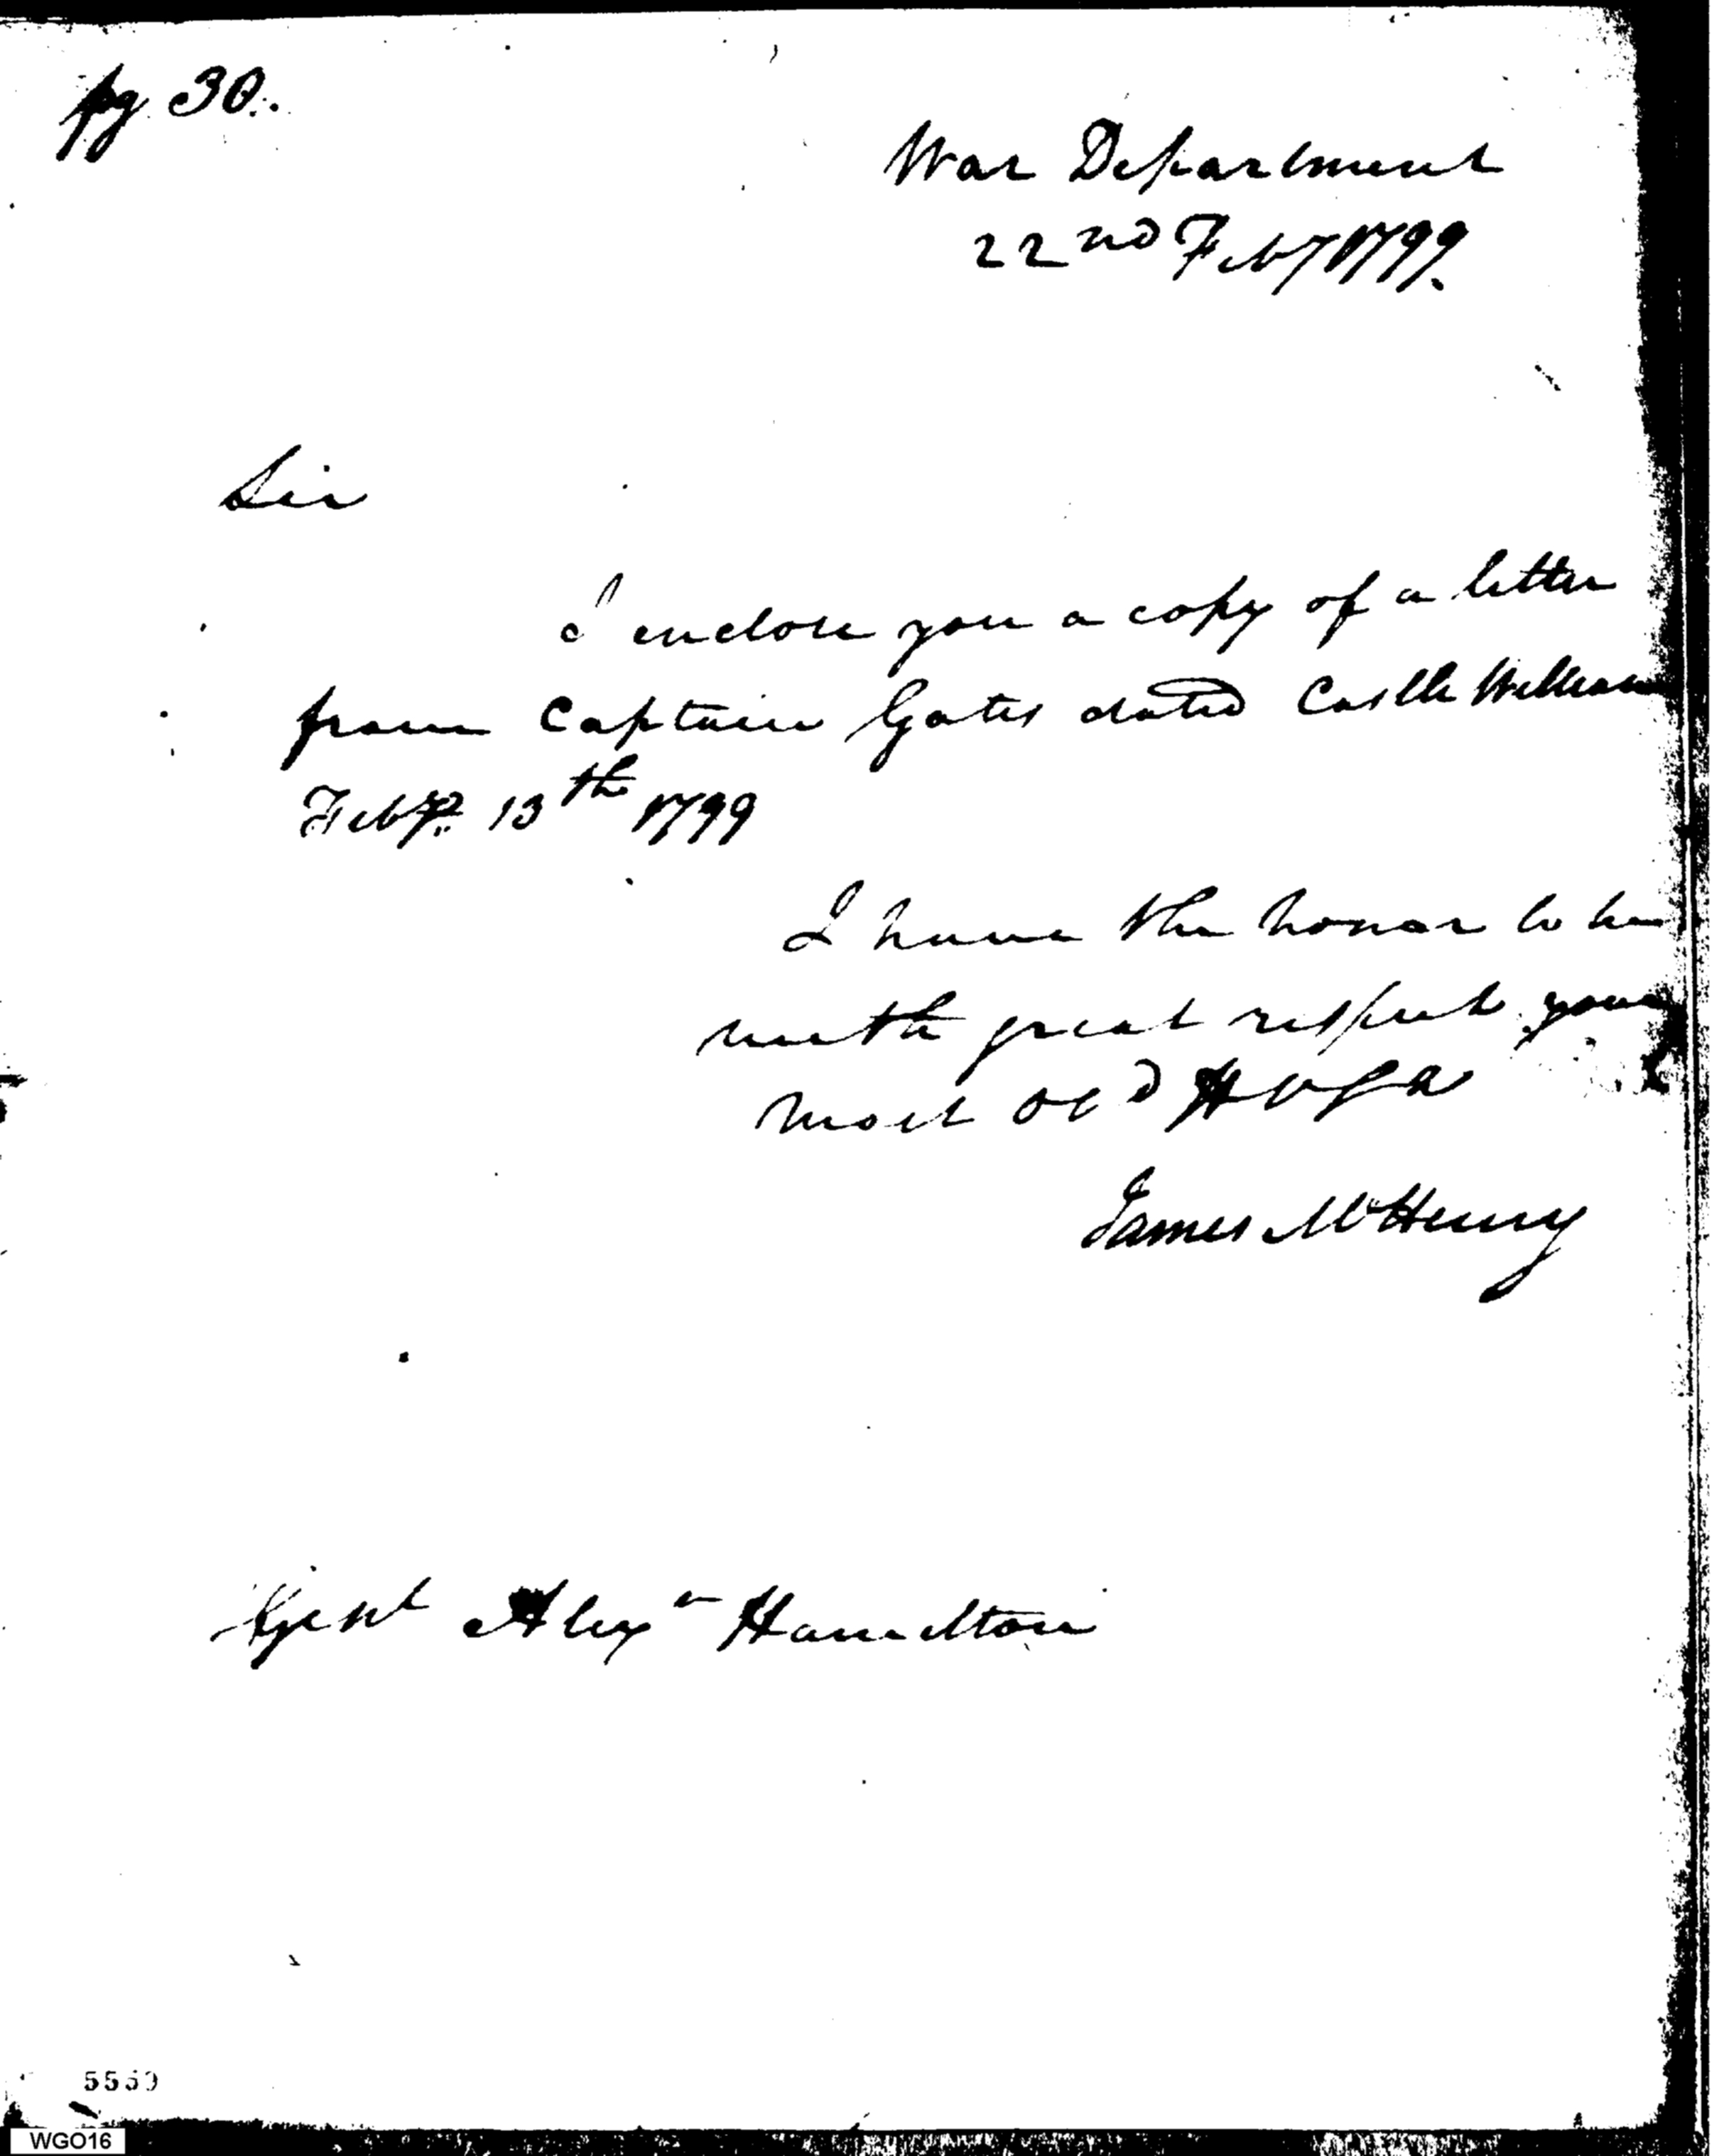 pg 30.
War Department
22nd Feby 1799.
Sir
I enclose you a copy of a letter
from Captain Gates dated Castle William
Feby. 13th 1799
I have the honor to be
with great respect your
most obd
James McHenry
Genl Alexr Hamilton
WGO16